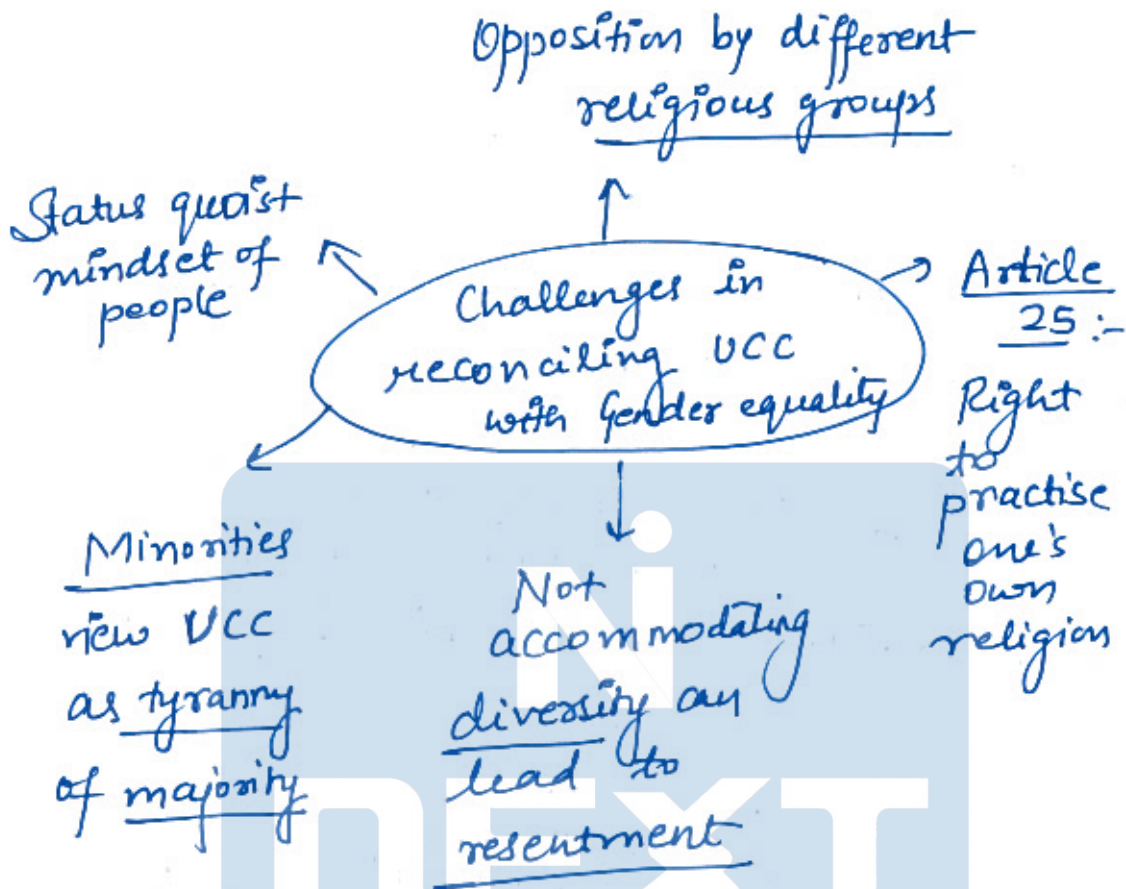 Opposition by different
religious groups
Status quoist
mindset of
people
Challenges in
reconciling UCC
with Gender equality
Article
25 :-
Right
to
practise
one's
own
religion
Minorities
view UCC
as tyranny
of majority
Not
accommodating
diversity can
lead to
resentment
NEXT